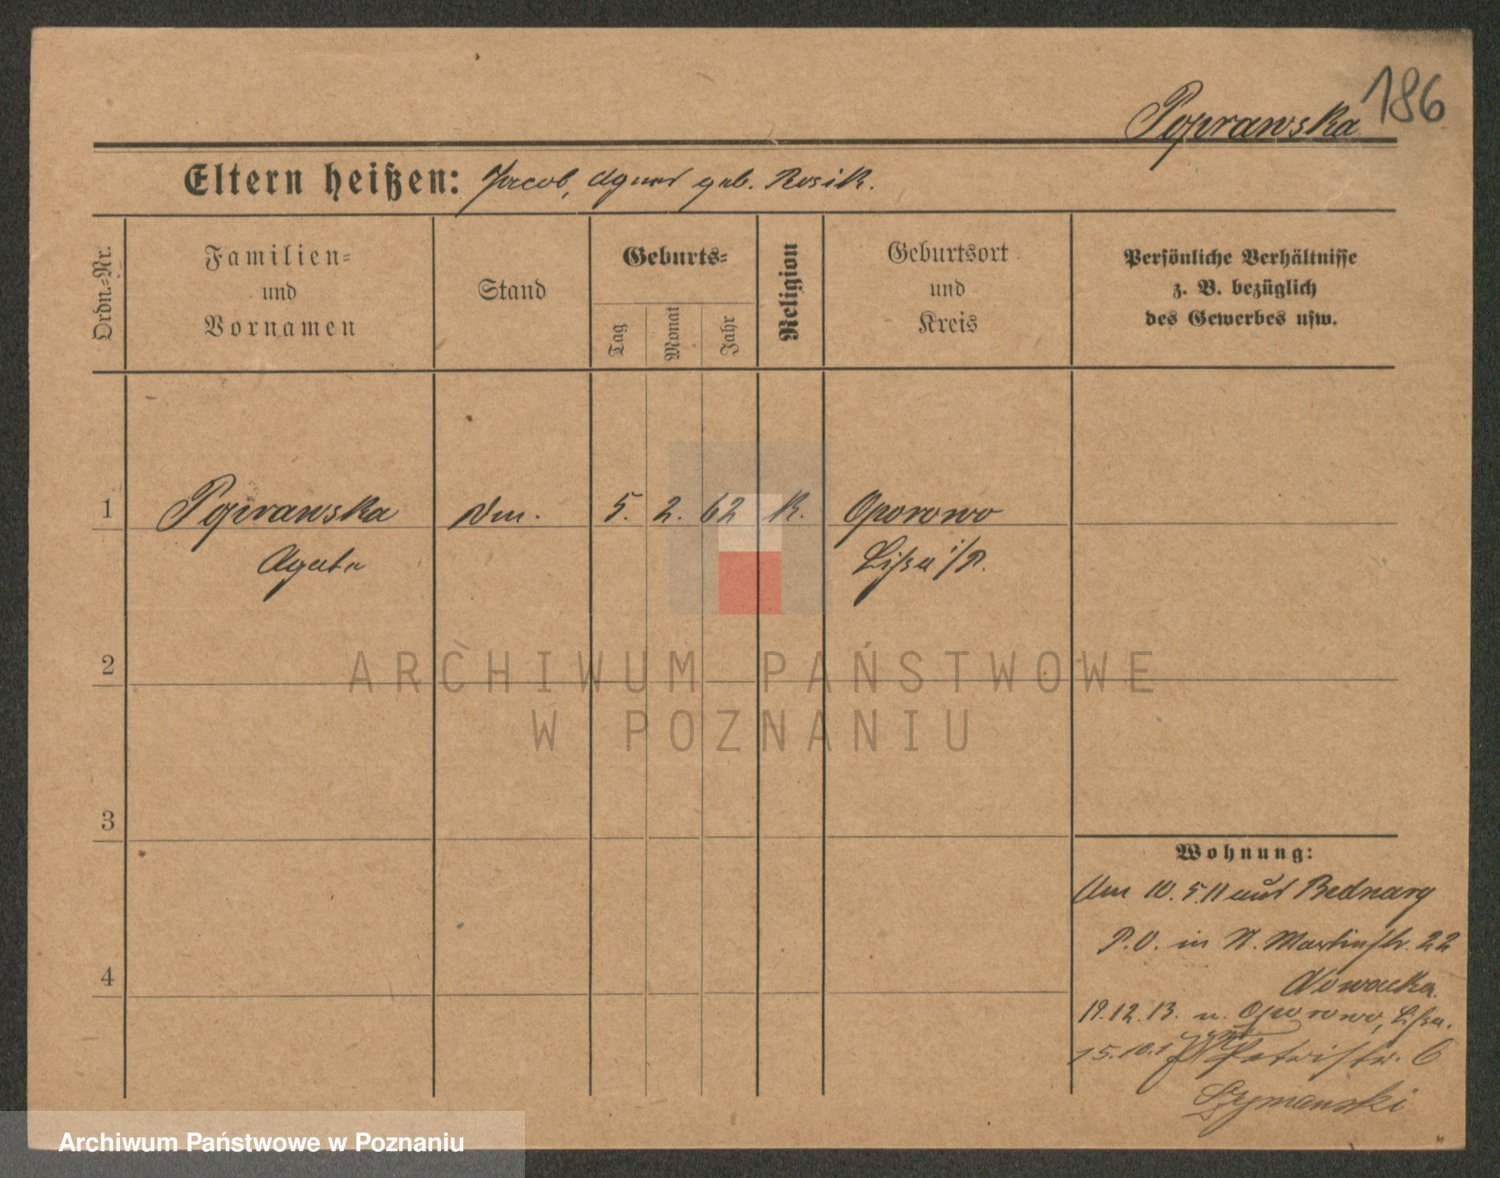 186
Poprawska
Eltern heißen: Jacob, Agnes geb. Rosik.
Ordn.-Nr.
Familien-
und
Vornamen
Stand
Geburts-
Tag
Monat
Jahr
Religion
Geburtsort
und
Kreis
Persönliche Verhältnisse
z. B. bezüglich
des Gewerbes usw.
1 Poprawska 5. 2. 62 K. Oporowo
Agata Lißa i/P.
2
ARCHIWUM PAŃSTWOWE
W POZNANIU
3
Wohnung:
Am 10.5.11 aus Bednary
P.O. in St. Martinstr. 22
Nowacka.
19.12.13. n. Oporowo, Lißa.
15.10.1 Petristr. 6
Szymanski
4
Archiwum Państwowe w Poznaniu